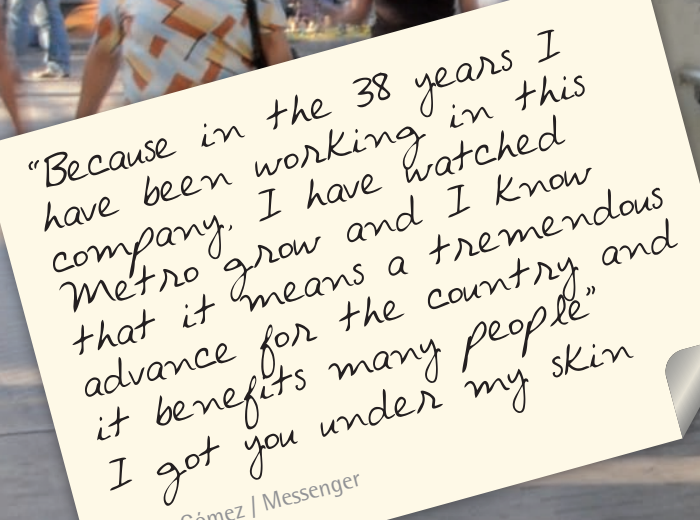 “Because in the 38 years I
have been working in this
company, I have watched
Metro grow and I know
that it means a tremendous
advance for the country and
it benefits many people”
I got you under my skin
Gómez / Messenger